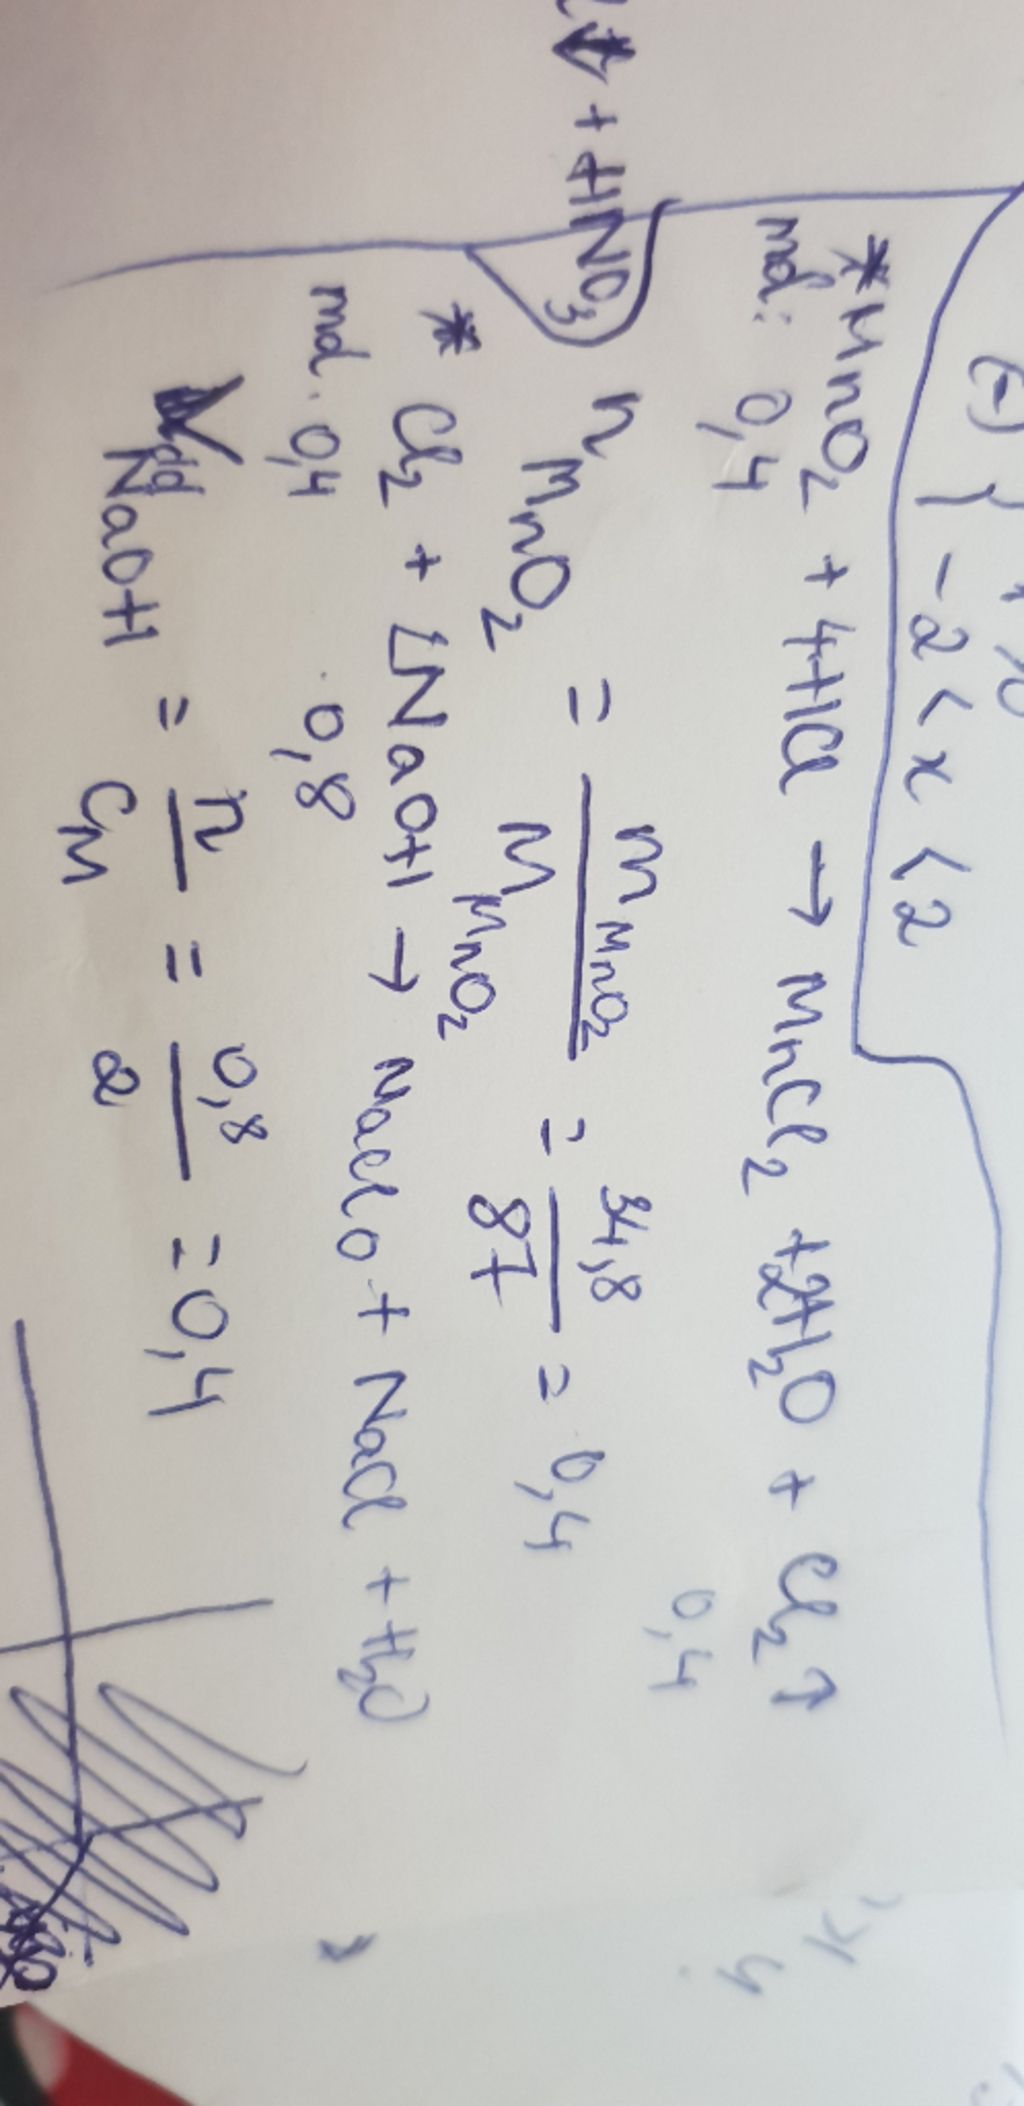 (-) } -2 < x < 2
*MnO₂ + 4HCl → MnCl₂ + 2H₂O + Cl₂↑
mol: 0,4 0,4
↓ + HNO₃
n MnO₂ = m MnO₂ / M MnO₂ = 34,8 / 87 = 0,4
* Cl₂ + 2NaOH → NaClO + NaCl + H₂O
mol. 0,4 0,8
Vdd NaOH = n / CM = 0,8 / 2 = 0,4